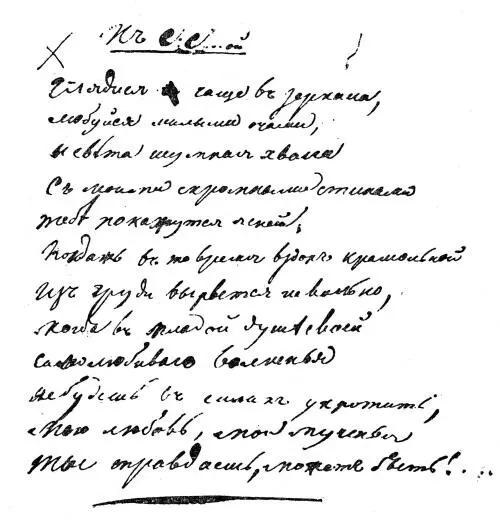 Къ С. С....ой
Глядися чаще въ зеркала,
любуйся милыми очами,
и свѣта шумная хвала
Съ моими скромными стихами
тебѣ покажутся ясней;
Когдажъ въ то время вздохъ крамольной
Изъ груди вырвется невольно,
когда въ младой душѣ своей
самолюбиваго волненья
не будешь въ силахъ укротить,
Мою любовь, мои мученья
Ты оправдаешь, можетъ быть! . . .